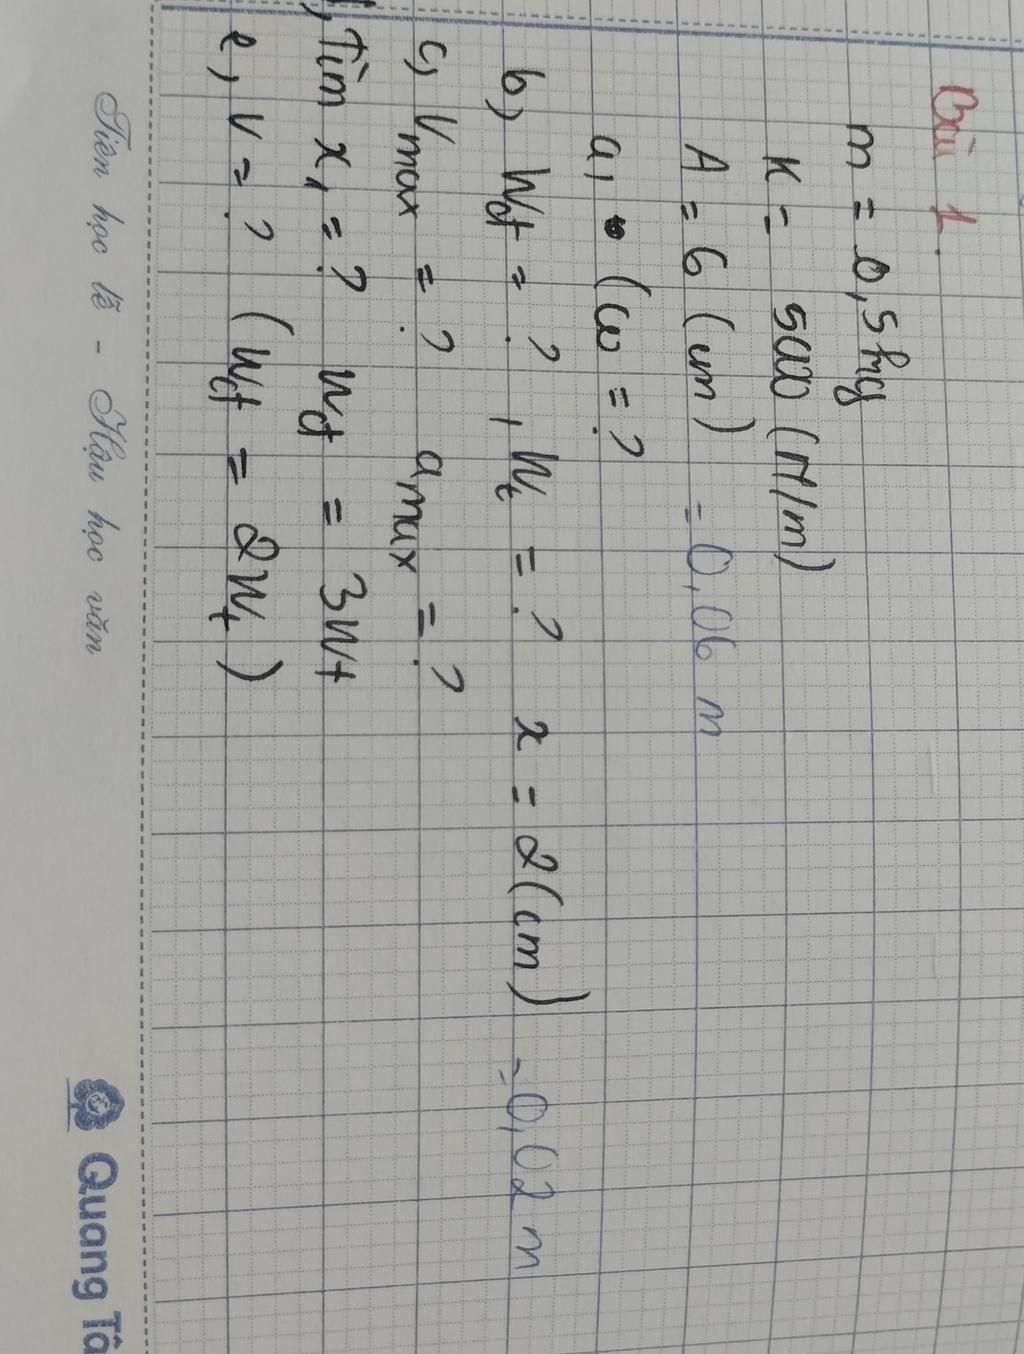 Bài 1.
m = 0,5kg
K = 500 (N/m)
A = 6 (cm) = 0,06 m
a, (ω = ?
b, Wđ = ? , Wt = ? x = 2 (cm) = 0,02 m
c, Vmax = ? amax = ?
d, Tìm x, = ? Wđ = 3Wt
e, v = ? (Wđ = 2Wt)
Tiên học lễ - Hậu học văn
Quang Tâ